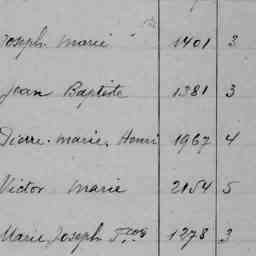 Joseph Marie 1401 3
Jean Baptiste 1381 3
Pierre. marie. Henri 1967 4
Victor Marie 2154 5
Marie Joseph Fcois 1278 3